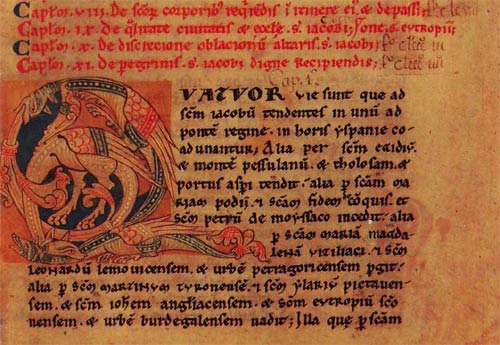 Capłm. VIII. De scōr corporib; reqrēdis ī itinere ei⁹. & de passī
Capłm. IX. De q̄litate ciuitatis & ecclē. s. iacobi; s. eutropii;
Capłm. X. De discrecione oblacionū altaris. s. iacobi;
Capłm. XI. De peregrinis. s. iacobi digne recipiendis;
Cap. I.
QVATVOR vie sunt que ad
scm̄ iacobū tendentes in unū ad
pontē regine. in horis yspanie co-
adunantur; Alia per scm̄ egidiū.
& montē pessulanū. & tholosam. &
portus aspi tendit: alia p̱ scām ma
riam podii. & scām fidem cōquis. &
scm̄ petrū de moyssaco incedit: alia
p̱ scām mariā magda
lenā viziliaci. & scm̄
leonardū lemovicensem. & urbē petragoricensem pgit:
alia p̱ scm̄ martinum turonensē. & scm̄ ylariū pictauen-
sem. & scm̄ iohem angliacensem. & scm̄ eutropiū scō
nensem. & urbē burdegalensem uadit; Illa que p̱ scām